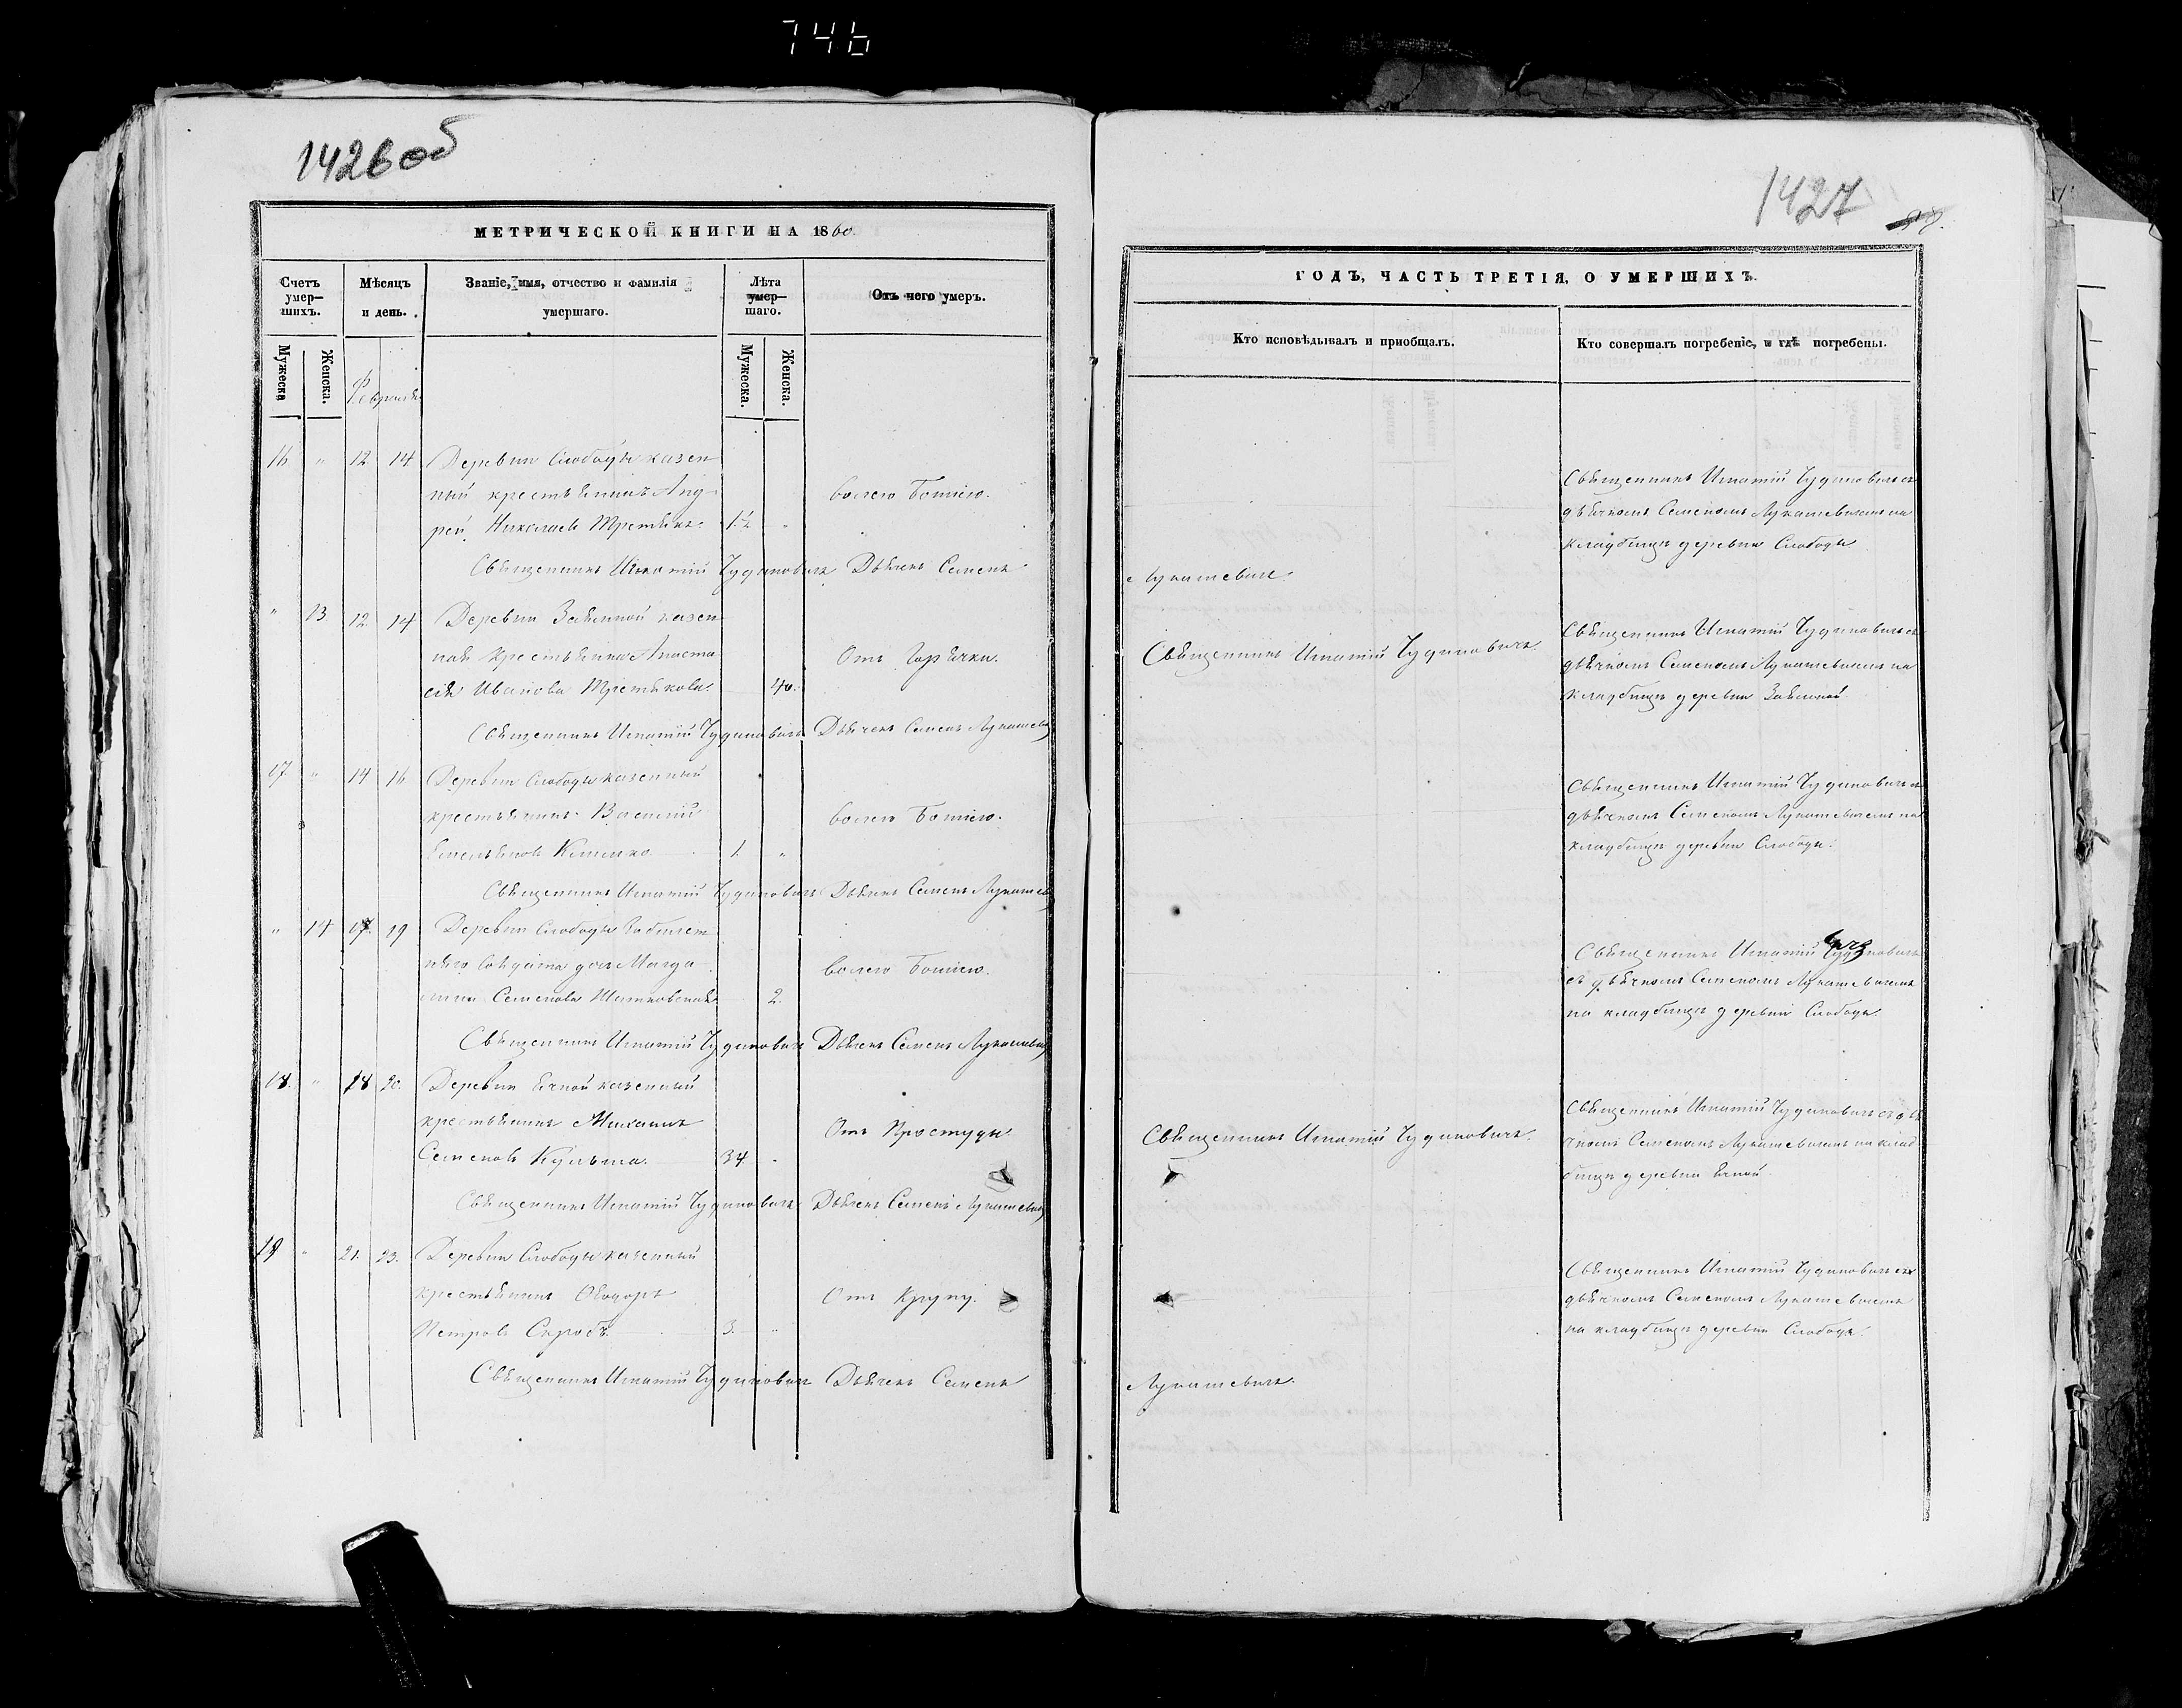 746
1426 об
МЕТРИЧЕСКОЙ КНИГИ НА 1860.
Счетъ умер–шихъ.
Мѣсяцъ и день.
Званіе, имя, отчество и фамилія умершаго.
Лѣта умер–шаго.
Отъ чего умеръ.
Мужеска
Женска.
Февраля
Мужеска.
Женска.
16 " 12 14 Деревни Слободы казен
ный крестьянинъ Анд
рей Николаевъ Третьякъ. 1½ " волею Божіею.
Священникъ Игнатій Чудиновичъ Дьячекъ Семенъ
" 13 12 14 Деревни казен
ная крестьянка Анаста
сія Иванова Третьякова. 40. Отъ Горячки.
Священникъ Игнатій Чудиновичъ Дьячекъ Семенъ Лукашевич
17 " 14 16 Деревни Слободы казенный
крестьянинъ Василій
Емельяновъ 1. " волею Божіею.
Священникъ Игнатій Чудиновичъ Дьячекъ Семенъ Лукашев
" 14 17. 19 Деревни Слободы
солдата дочь Магда
лина Семенова 2. волею Божіею.
Священникъ Игнатій Чудиновичъ Дьячекъ Семенъ Лукашевич
18. " 18 20. Деревни Ячной казенный
крестьянинъ Михаилъ
Семеновъ Кульша. 34. " Отъ Простуды.
Священникъ Игнатій Чудиновичъ Дьячекъ Семенъ Лукашевич
19 " 21. 23. Деревни Слободы казенный
крестьянинъ Ѳеодоръ
Петровъ Скробъ. 3. " Отъ Крупу.
Священникъ Игнатій Чудиновичъ Дьячекъ Семенъ
1427
ГОДЪ, ЧАСТЬ ТРЕТІЯ, О УМЕРШИХЪ.
Кто исповѣдывалъ и пріобщалъ.
Кто совершалъ погребеніе, и гдѣ погребены.
Священникъ Игнатій Чудиновичъ съ
дьячкомъ Семеномъ Лукашевичемъ на
кладбищѣ деревни Слободы
Лукашевичъ.
Священникъ Игнатій Чудиновичъ.
Священникъ Игнатій Чудиновичъ съ
дьячкомъ Семеномъ Лукашевичемъ на
кладбищѣ деревни
Священникъ Игнатій Чудиновичъ съ
дьячкомъ Семеномъ Лукашевичемъ на
кладбищѣ деревни Слободы.
Священникъ Игнатій Чудиновичъ
съ дьячкомъ Семеномъ Лукашевичемъ
на кладбищѣ деревни Слободы.
Священникъ Игнатій Чудиновичъ.
Священникъ Игнатій Чудиновичъ съ дья
чкомъ Семеномъ Лукашевичемъ на клад
бищѣ деревни Ячной
Священникъ Игнатій Чудиновичъ съ
дьячкомъ Семеномъ Лукашевичемъ
на кладбищѣ деревни Слободы.
Лукашевичъ.